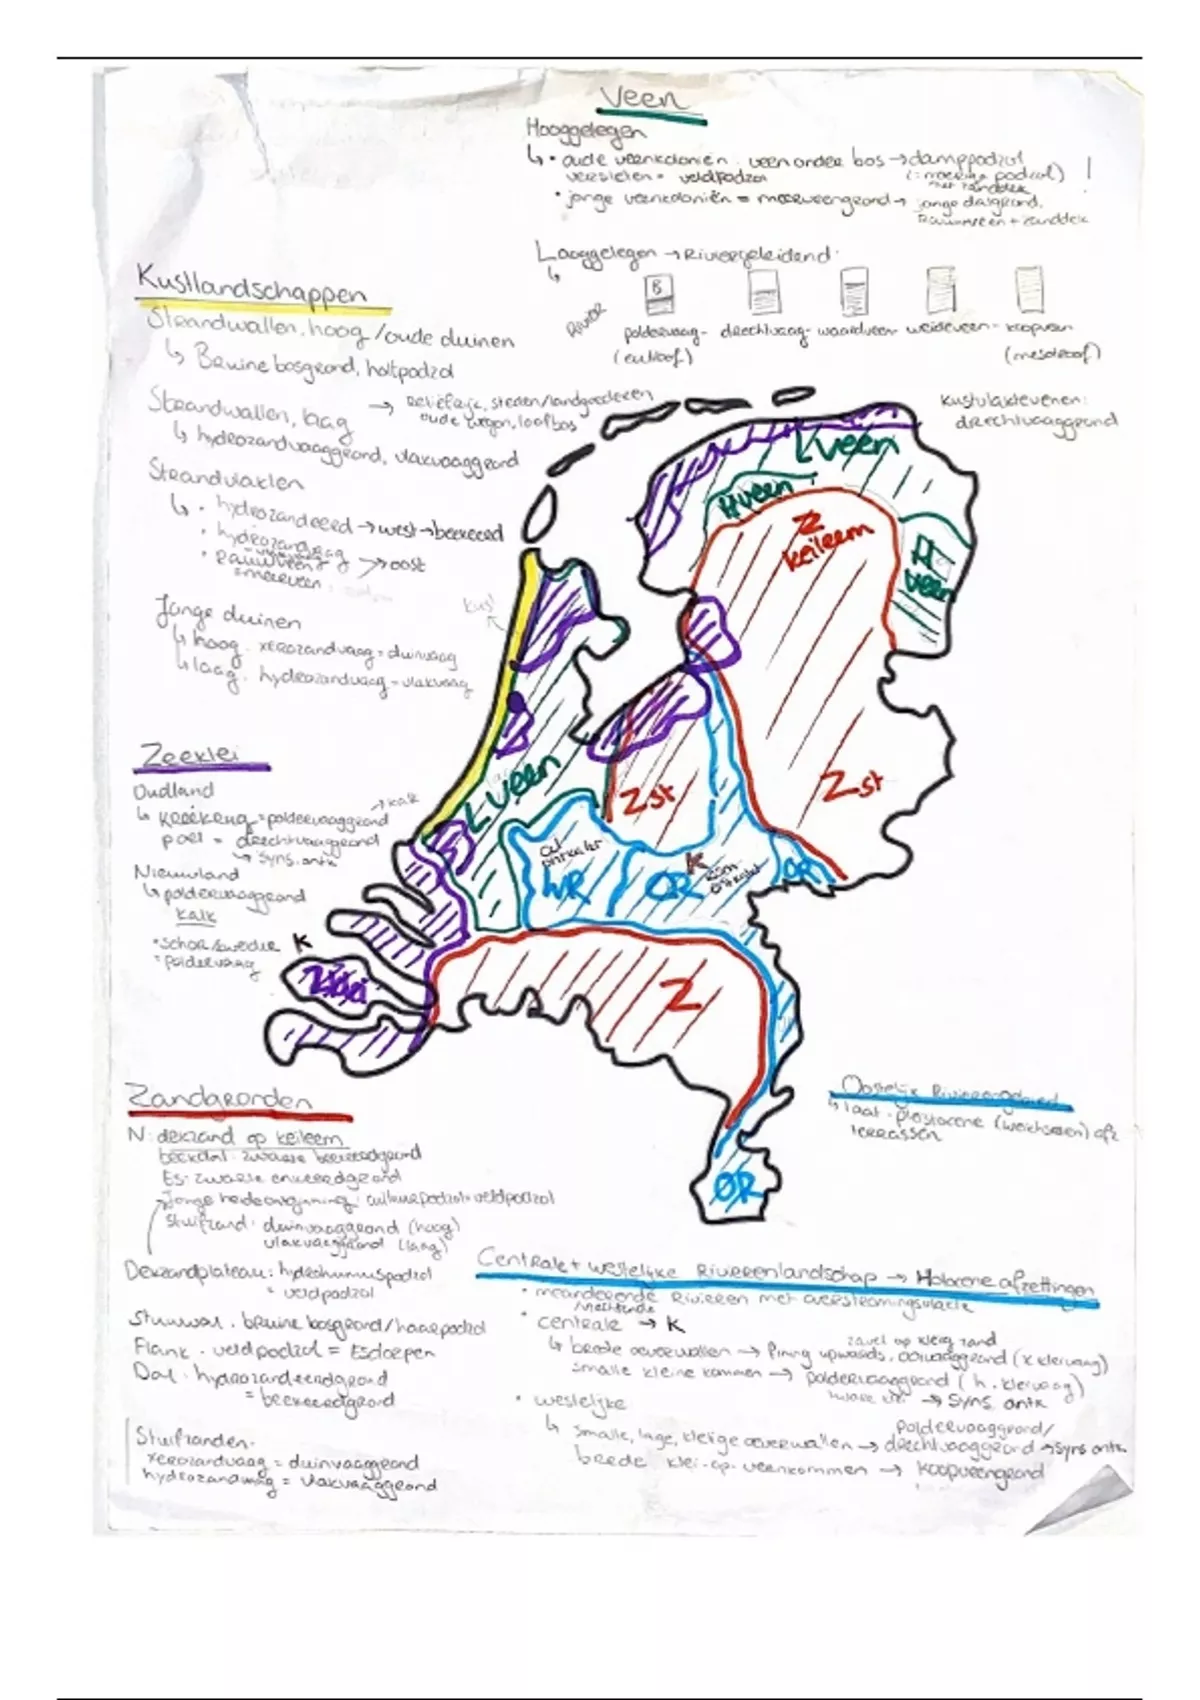 Veen
Hooggelegen
↳ • oude veenkoloniën: veen onder bos → damppodzol
versleten = veldpodzol
(= moerige podzol) !
met zanddek
• jonge veenkoloniën = moerveengrond → jonge dalgrond,
Rauwveen + zanddek
Laaggelegen → Riviergeleidend:
↳
B
RIVIER
poldervaag- drechtvaag- waardveen- weideveen- koopveen
(eutroof) (mesotroof)
Kustvlakteveenen:
drechtvaaggrond
Kustlandschappen
Strandwallen, hoog / oude duinen
↳ Bruine bosgrond, holtpodzol
Strandwallen, laag → Reliëfrijk, steden/landgoederen
oude wegen, loofbos
↳ hydrozandvaaggrond, vlakvaaggrond
Strandvlakten
↳ • hydrozandeerd → west → beekeerd
• hydrozandvaag
• Rauwveen → oost
= moerveen
Jonge duinen
↳ hoog. xerozandvaag = duinvaag
↳ laag. hydrozandvaag = vlakvaag
kust
Zeeklei
Oudland
↳ kreekrug = poldervaaggrond
→ kalk
poel = drechtvaaggrond
↳ syns. antr.
Nieuwland
↳ poldervaaggrond
kalk
• schor/kwelder K
= poldervaag
Lveen
Hveen
Z
keileem
H
veen
Lveen
Zst
Zst
WR
K
OR
OR
Z
Zklei
OR
Zandgronden
N: dekzand op keileem
beekdal: zwarte beekeerdgrond
Es: zwarte enkeerdgrond
Jonge heideontginning: cultuurpodzol = veldpodzol
Stuifzand: duinvaaggrond (hoog)
vlakvaaggrond (laag)
Dekzandplateau: hydrohumuspodzol
= veldpodzol
Stuwwal. bruine bosgrond/haarpodzol
Flank. veldpodzol = Esdorpen
Dal. hydrozandeerdgrond
= beekeerdgrond
Stuifzanden.
xerozandvaag = duinvaaggrond
hydrozandvaag = vlakvaaggrond
Oostelijk Rivierengebied
↳ laat-pleistocene (weichselien) afz
terrassen
Centrale + westelijke Rivierenlandschap → Holocene afzettingen
• meanderende Rivieren met overstromingsvlakte
• centrale → K
zavel op klei zand
↳ brede oeverwallen → fining upwards, ooivaaggrond (x kleivaag)
smalle kleine kommen → poldervaaggrond (h. kleivaag)
→ syns. antr
• westelijke
poldervaaggrond/
↳ smalle, lage, kleiige oeverwallen → drechtvaaggrond → syns antr
brede klei-op-veenkommen → koopveengrond